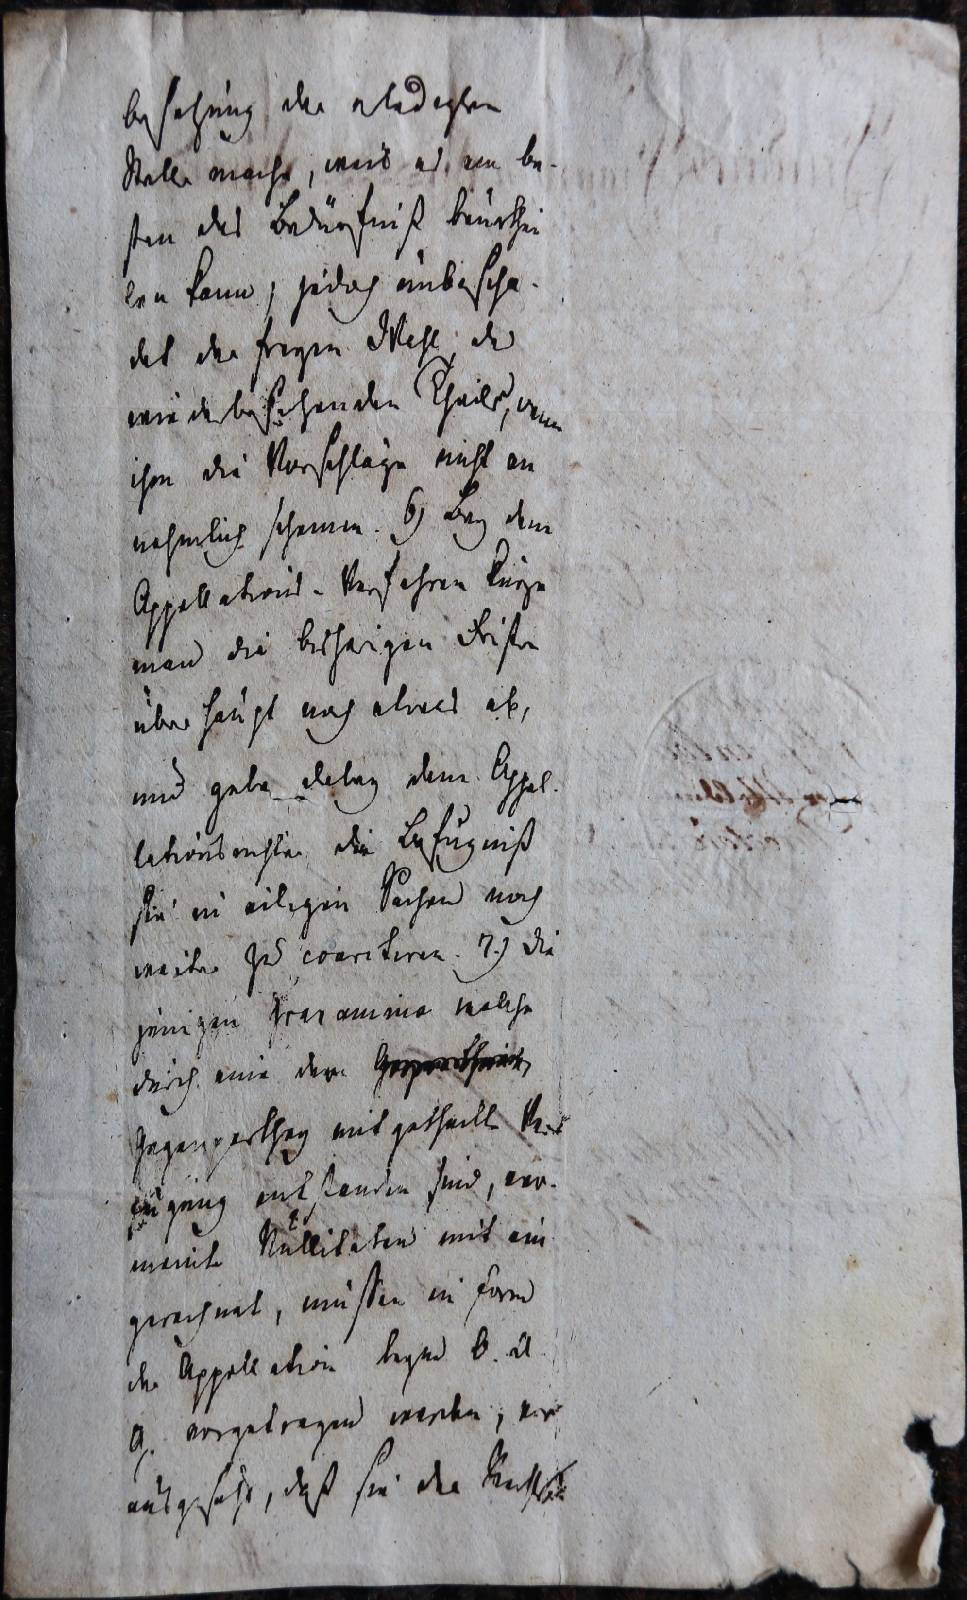 besetzung der erledigten
Stelle mache, weil er am be-
sten das Bedürfniß beurthei
len kann, jedoch unbescha-
det der freyen Wahl des
wiederbesetzenden Theils, wenn
ihm die Vorschläge nicht an
nehmlich scheinen. 6) Bey dem
Appellations-Verfahren kürze
man die bisherigen Fristen
überhaupt noch etwas ab,
und gebe dabey dem Appel-
lationsrichter die Befugniß
sie in eiligen Sachen noch
weiter zu coarctiren. 7.) Die
jenigen Gravamina welche
durch eine der
Gegenparthey mitgetheilte Ver
fügung entstanden sind, ver-
meinte Nullitaten mit ein
gerechnet, müssen in Form
der Appellation beym O. A.
G. vorgetragen werden, vor
ausgesetzt, daß sie die